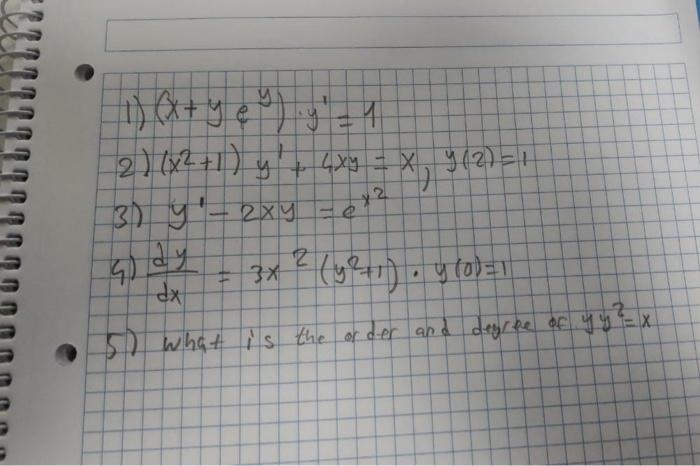 1) (x + y e^y) · y' = 1
2) (x²+1) y' + 4xy = x, y(2)=1
3) y' - 2xy = e^x²
4) dy/dx = 3x² (y²+1) · y(0)=1
5) what is the order and degree of yy²=x